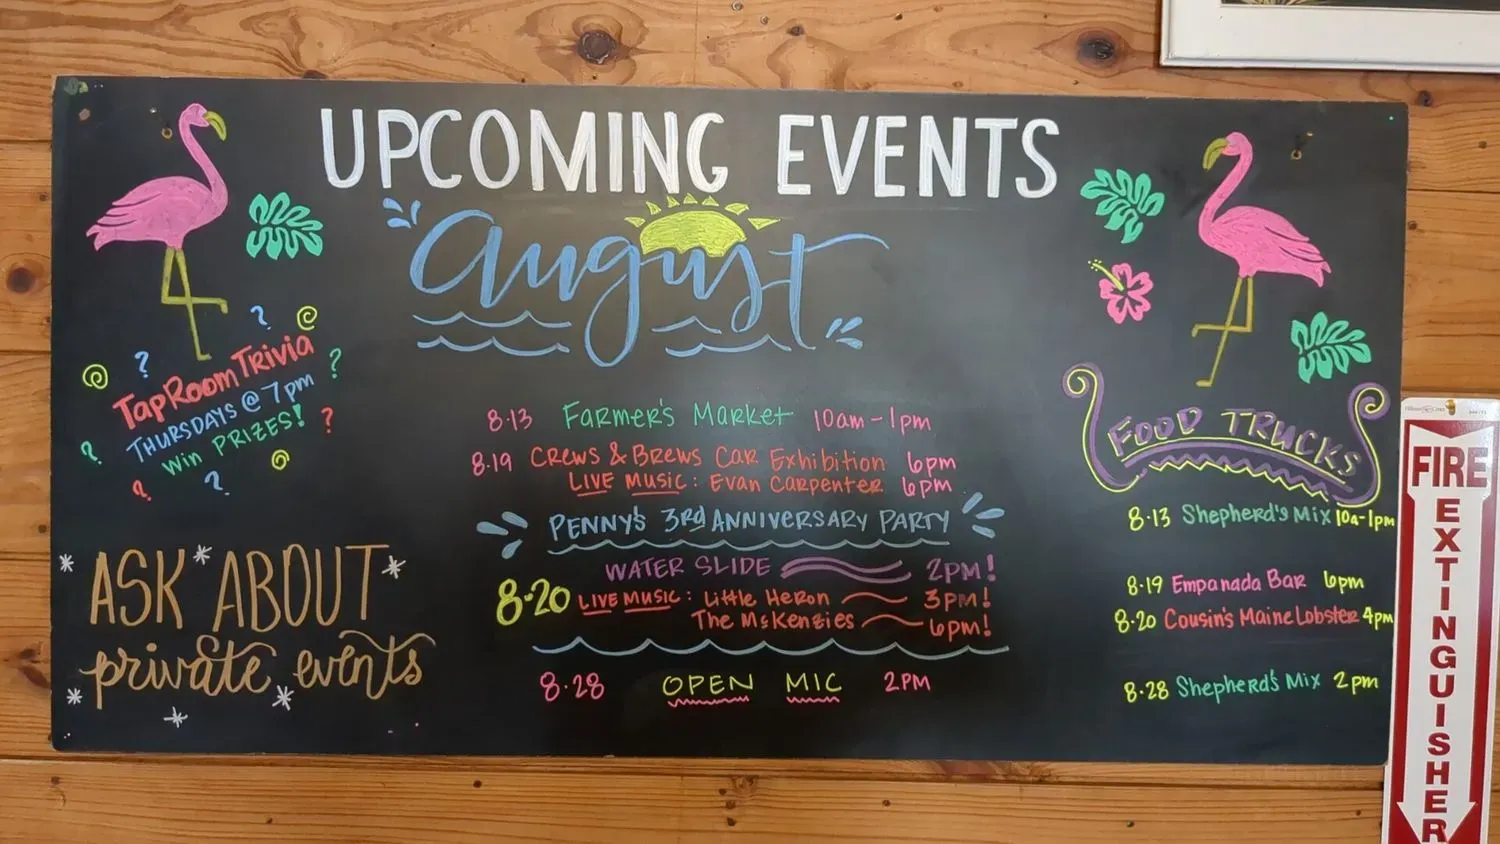 UPCOMING EVENTS
August
TapRoom Trivia
THURSDAYS @ 7pm
Win PRIZES!
ASK ABOUT
private events
8·13 FARMER'S MARKET 10am-1pm
8·19 CREWS & BREWS CAR EXHIBITION 6pm
LIVE MUSIC: EVAN CARPENTER 6pm
PENNY'S 3rd ANNIVERSARY PARTY
WATER SLIDE 2PM!
8·20 LIVE MUSIC: LITTLE HERON 3PM!
THE McKENZIES 6pm!
8·28 OPEN MIC 2PM
FOOD TRUCKS
8·13 Shepherd's Mix 10a-1pm
8·19 Empanada Bar 6pm
8·20 Cousin's Maine Lobster 4pm
8·28 Shepherd's Mix 2pm
FIRE
EXTINGUISHER